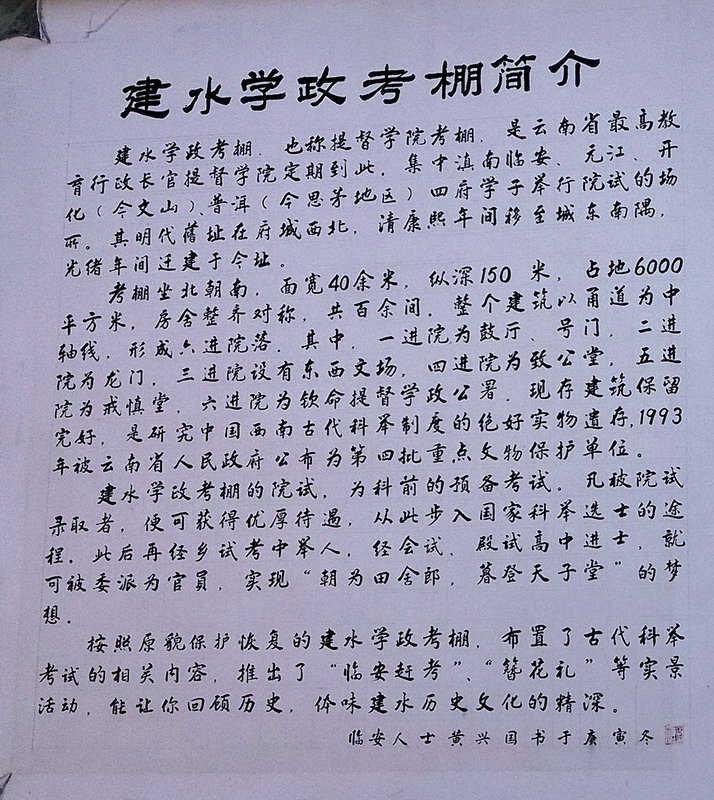 建水学政考棚简介
建水学政考棚、也称提督学院考棚，是云南省最高教
育行政长官提督学院定期到此，集中滇南临安、元江、开
化（今文山）、普洱（今思茅地区）四府学子举行院试的场
所。其明代舊址在府城西北，清康熙年间移至城东南隅，
光绪年间迁建于今址。
考棚坐北朝南，面宽40余米，纵深150米，占地6000
平方米，房舍整齐对称，共百余间，整个建筑以甬道为中
轴线，形成六进院落，其中，一进院为鼓厅、号门，二进
院为龙门，三进院设有东西文场，四进院为致公堂，五进
院为戒慎堂，六进院为钦命提督学政公署，现存建筑保留
完好，是研究中国西南古代科举制度的绝好实物遗存，1993
年被云南省人民政府公布为第四批重点文物保护单位。
建水学政考棚的院试，为科前的预备考试。凡被院试
录取者，便可获得优厚待遇，从此步入国家科举选士的途
程。此后再经乡试考中举人，经会试、殿试高中进士，就
可被委派为官員，实现“朝为田舍郎，暮登天子堂”的梦
想.
按照原貌保护恢复的建水学政考棚，布置了古代科举
考试的相关内容，推出了“临安赶考”、“簪花礼”等实景
活动，能让你回顾历史，体味建水历史文化的精深。
临安人士黄兴国书于庚寅冬